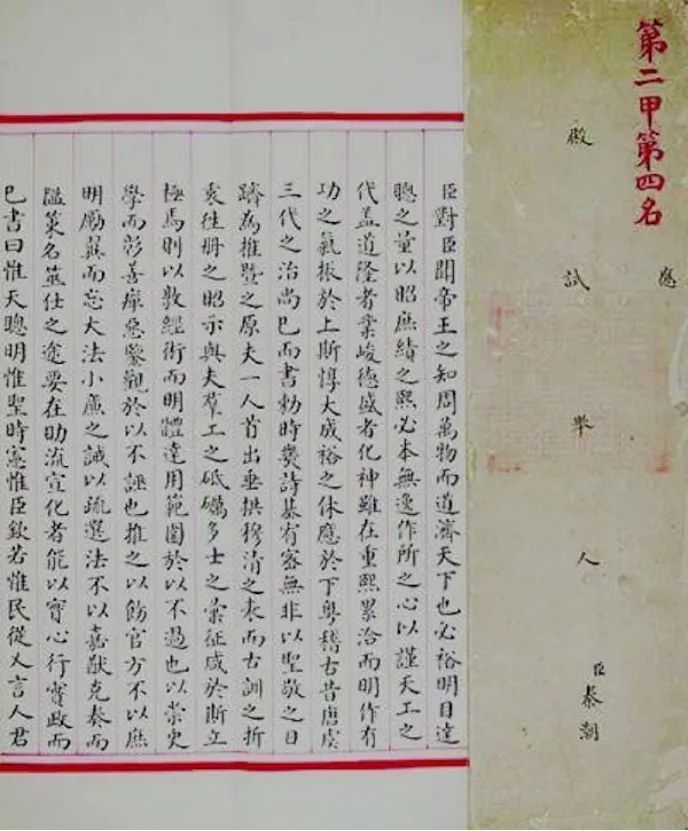 第二甲第四名
應
殿試舉人臣秦潮
臣對臣聞帝王之知周萬物而道濟天下也必裕明目達
聰之量以昭庶績之熙必本無逸作所之心以謹天工之
代盖道隆者業峻德盛者化神雖在重熙累洽而明作有
功之氣振於上斯惇大成裕之休應於下粵稽古昔唐虞
三代之治尚已而書勑時幾詩基宥密無非以聖敬之日
躋為推暨之原夫一人首出垂拱穆清之表而古訓之折
衷往册之昭示與夫羣工之砥礪多士之彙征咸於斯立
極焉則以敦經術而明體達用範圍於以不過也以崇史
學而彰善癉惡鑒觀於以不誣也推之以飭官方不以庶
明勵翼而忘大法小廉之誡以疏選法不以嘉猷克奏而
濫策名筮仕之途要在助流宣化者能以實心行實政而
已書曰惟天聰明惟聖時憲惟臣欽若惟民從乂言人君